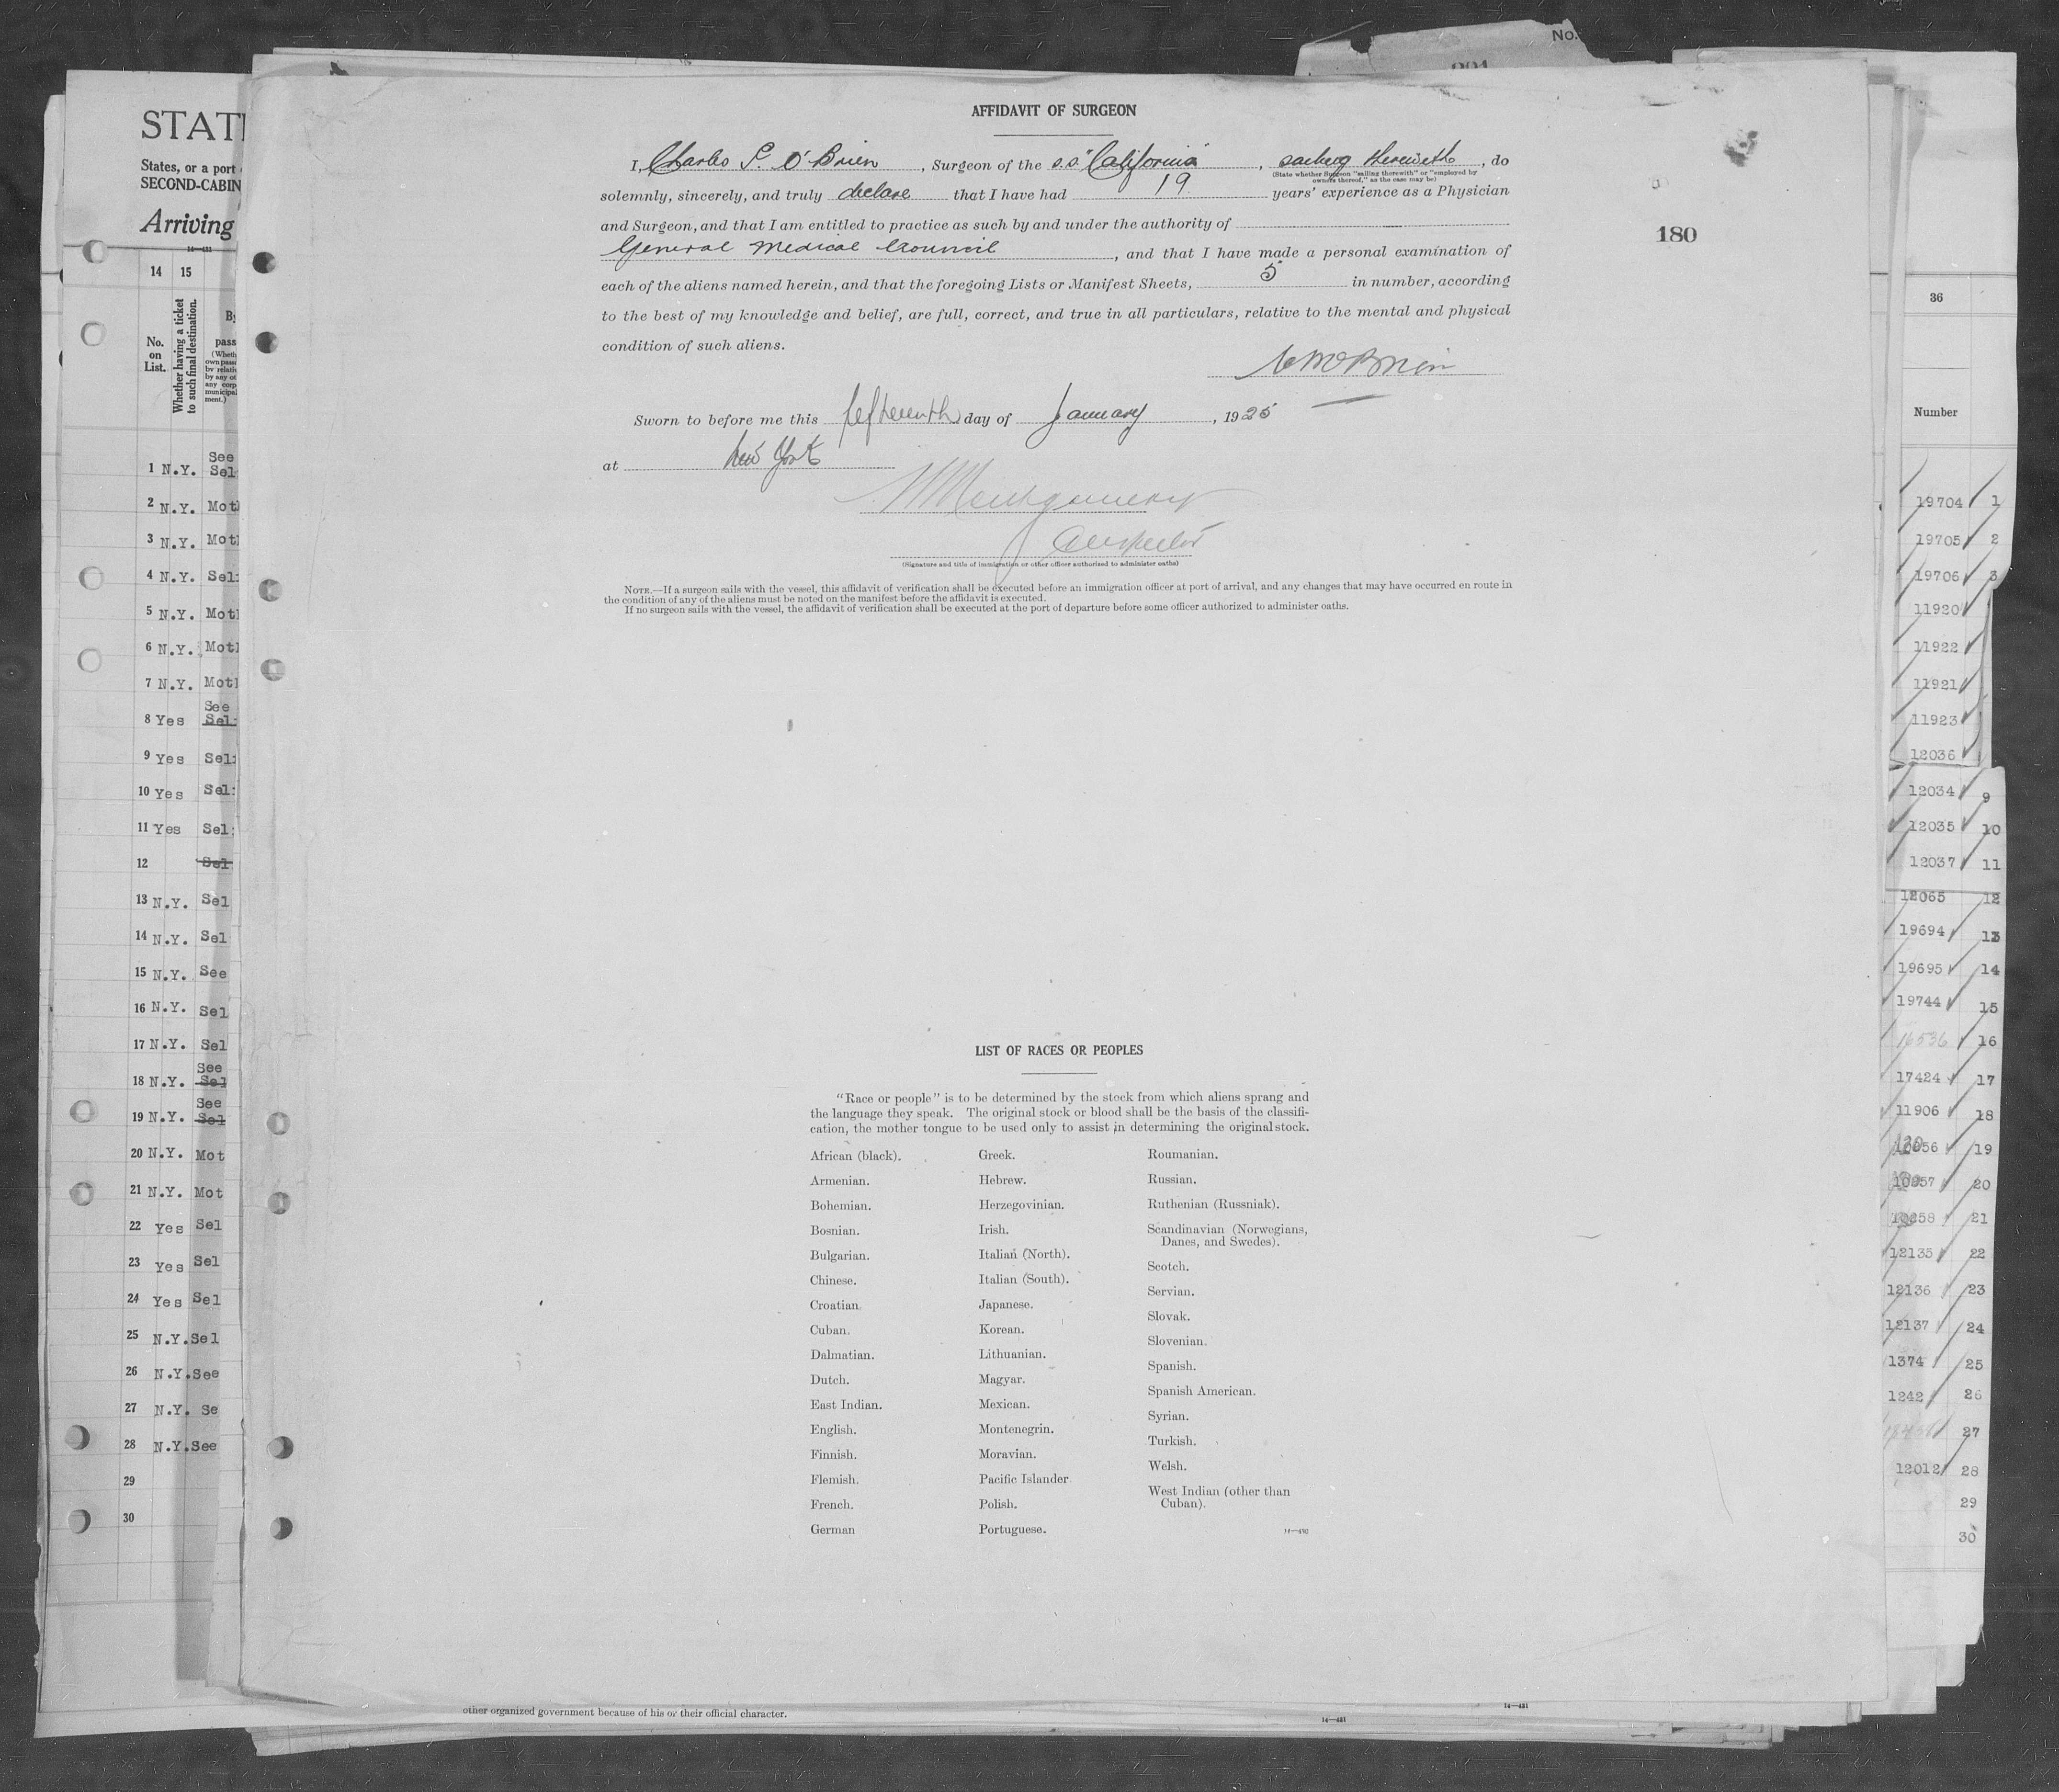 No.
AFFIDAVIT OF SURGEON
I, Charles P. O'Brien, Surgeon of the s.s. "California", sailing therewith, do
(State whether Surgeon "sailing therewith" or "employed by
owners thereof," as the case may be)
solemnly, sincerely, and truly declare that I have had 19 years' experience as a Physician
and Surgeon, and that I am entitled to practice as such by and under the authority of
General Medical Council, and that I have made a personal examination of
each of the aliens named herein, and that the foregoing Lists or Manifest Sheets, 5 in number, according
to the best of my knowledge and belief, are full, correct, and true in all particulars, relative to the mental and physical
condition of such aliens.
Sworn to before me this fifteenth day of January, 1925
at New York
Montgomery
Inspector
(Signature and title of immigration or other officer authorized to administer oaths)
NOTE.—If a surgeon sails with the vessel, this affidavit of verification shall be executed before an immigration officer at port of arrival, and any changes that may have occurred en route in
the condition of any of the aliens must be noted on the manifest before the affidavit is executed.
If no surgeon sails with the vessel, the affidavit of verification shall be executed at the port of departure before some officer authorized to administer oaths.
180
LIST OF RACES OR PEOPLES
"Race or people" is to be determined by the stock from which aliens sprang and
the language they speak. The original stock or blood shall be the basis of the classifi-
cation, the mother tongue to be used only to assist in determining the original stock.
African (black).
Armenian.
Bohemian.
Bosnian.
Bulgarian.
Chinese.
Croatian
Cuban.
Dalmatian.
Dutch.
East Indian.
English.
Finnish.
Flemish.
French.
German
Greek.
Hebrew.
Herzegovinian.
Irish.
Italian (North).
Italian (South).
Japanese.
Korean.
Lithuanian.
Magyar.
Mexican.
Montenegrin.
Moravian.
Pacific Islander
Polish.
Portuguese.
Roumanian.
Russian.
Ruthenian (Russniak).
Scandinavian (Norwegians,
Danes, and Swedes).
Scotch.
Servian.
Slovak.
Slovenian.
Spanish.
Spanish American.
Syrian.
Turkish.
Welsh.
West Indian (other than
Cuban).
14—480
STAT
States, or a port
SECOND-CABIN
Arriving
14—481
14 15
No.
on
List.
Whether having a ticket
to such final destination.
By
pass
1 N.Y. See Sel
2 N.Y. Mot
3 N.Y. Mot
4 N.Y. Sel
5 N.Y. Mot
6 N.Y. Mot
7 N.Y. Mot
8 Yes See Sel
9 Yes Sel
10 Yes Sel
11 Yes Sel
12 Sel
13 N.Y. Sel
14 N.Y. Sel
15 N.Y. See
16 N.Y. Sel
17 N.Y. Sel
18 N.Y. See Sel
19 N.Y. See Sel
20 N.Y. Mot
21 N.Y. Mot
22 Yes Sel
23 Yes Sel
24 Yes Sel
25 N.Y. Sel
26 N.Y. See
27 N.Y. Se
28 N.Y. See
29
30
36
Number
19704 1
19705 2
19706 3
11920
11922
11921
11923
12036
12034 9
12035 10
12037 11
12065 12
19694 13
19695 14
19744 15
16536 16
17424 17
11906 18
19
20
21
12135 22
12136 23
12137 24
1374 25
1242 26
27
12012 28
29
30
other organized government because of his or their official character.
14—481
14—481